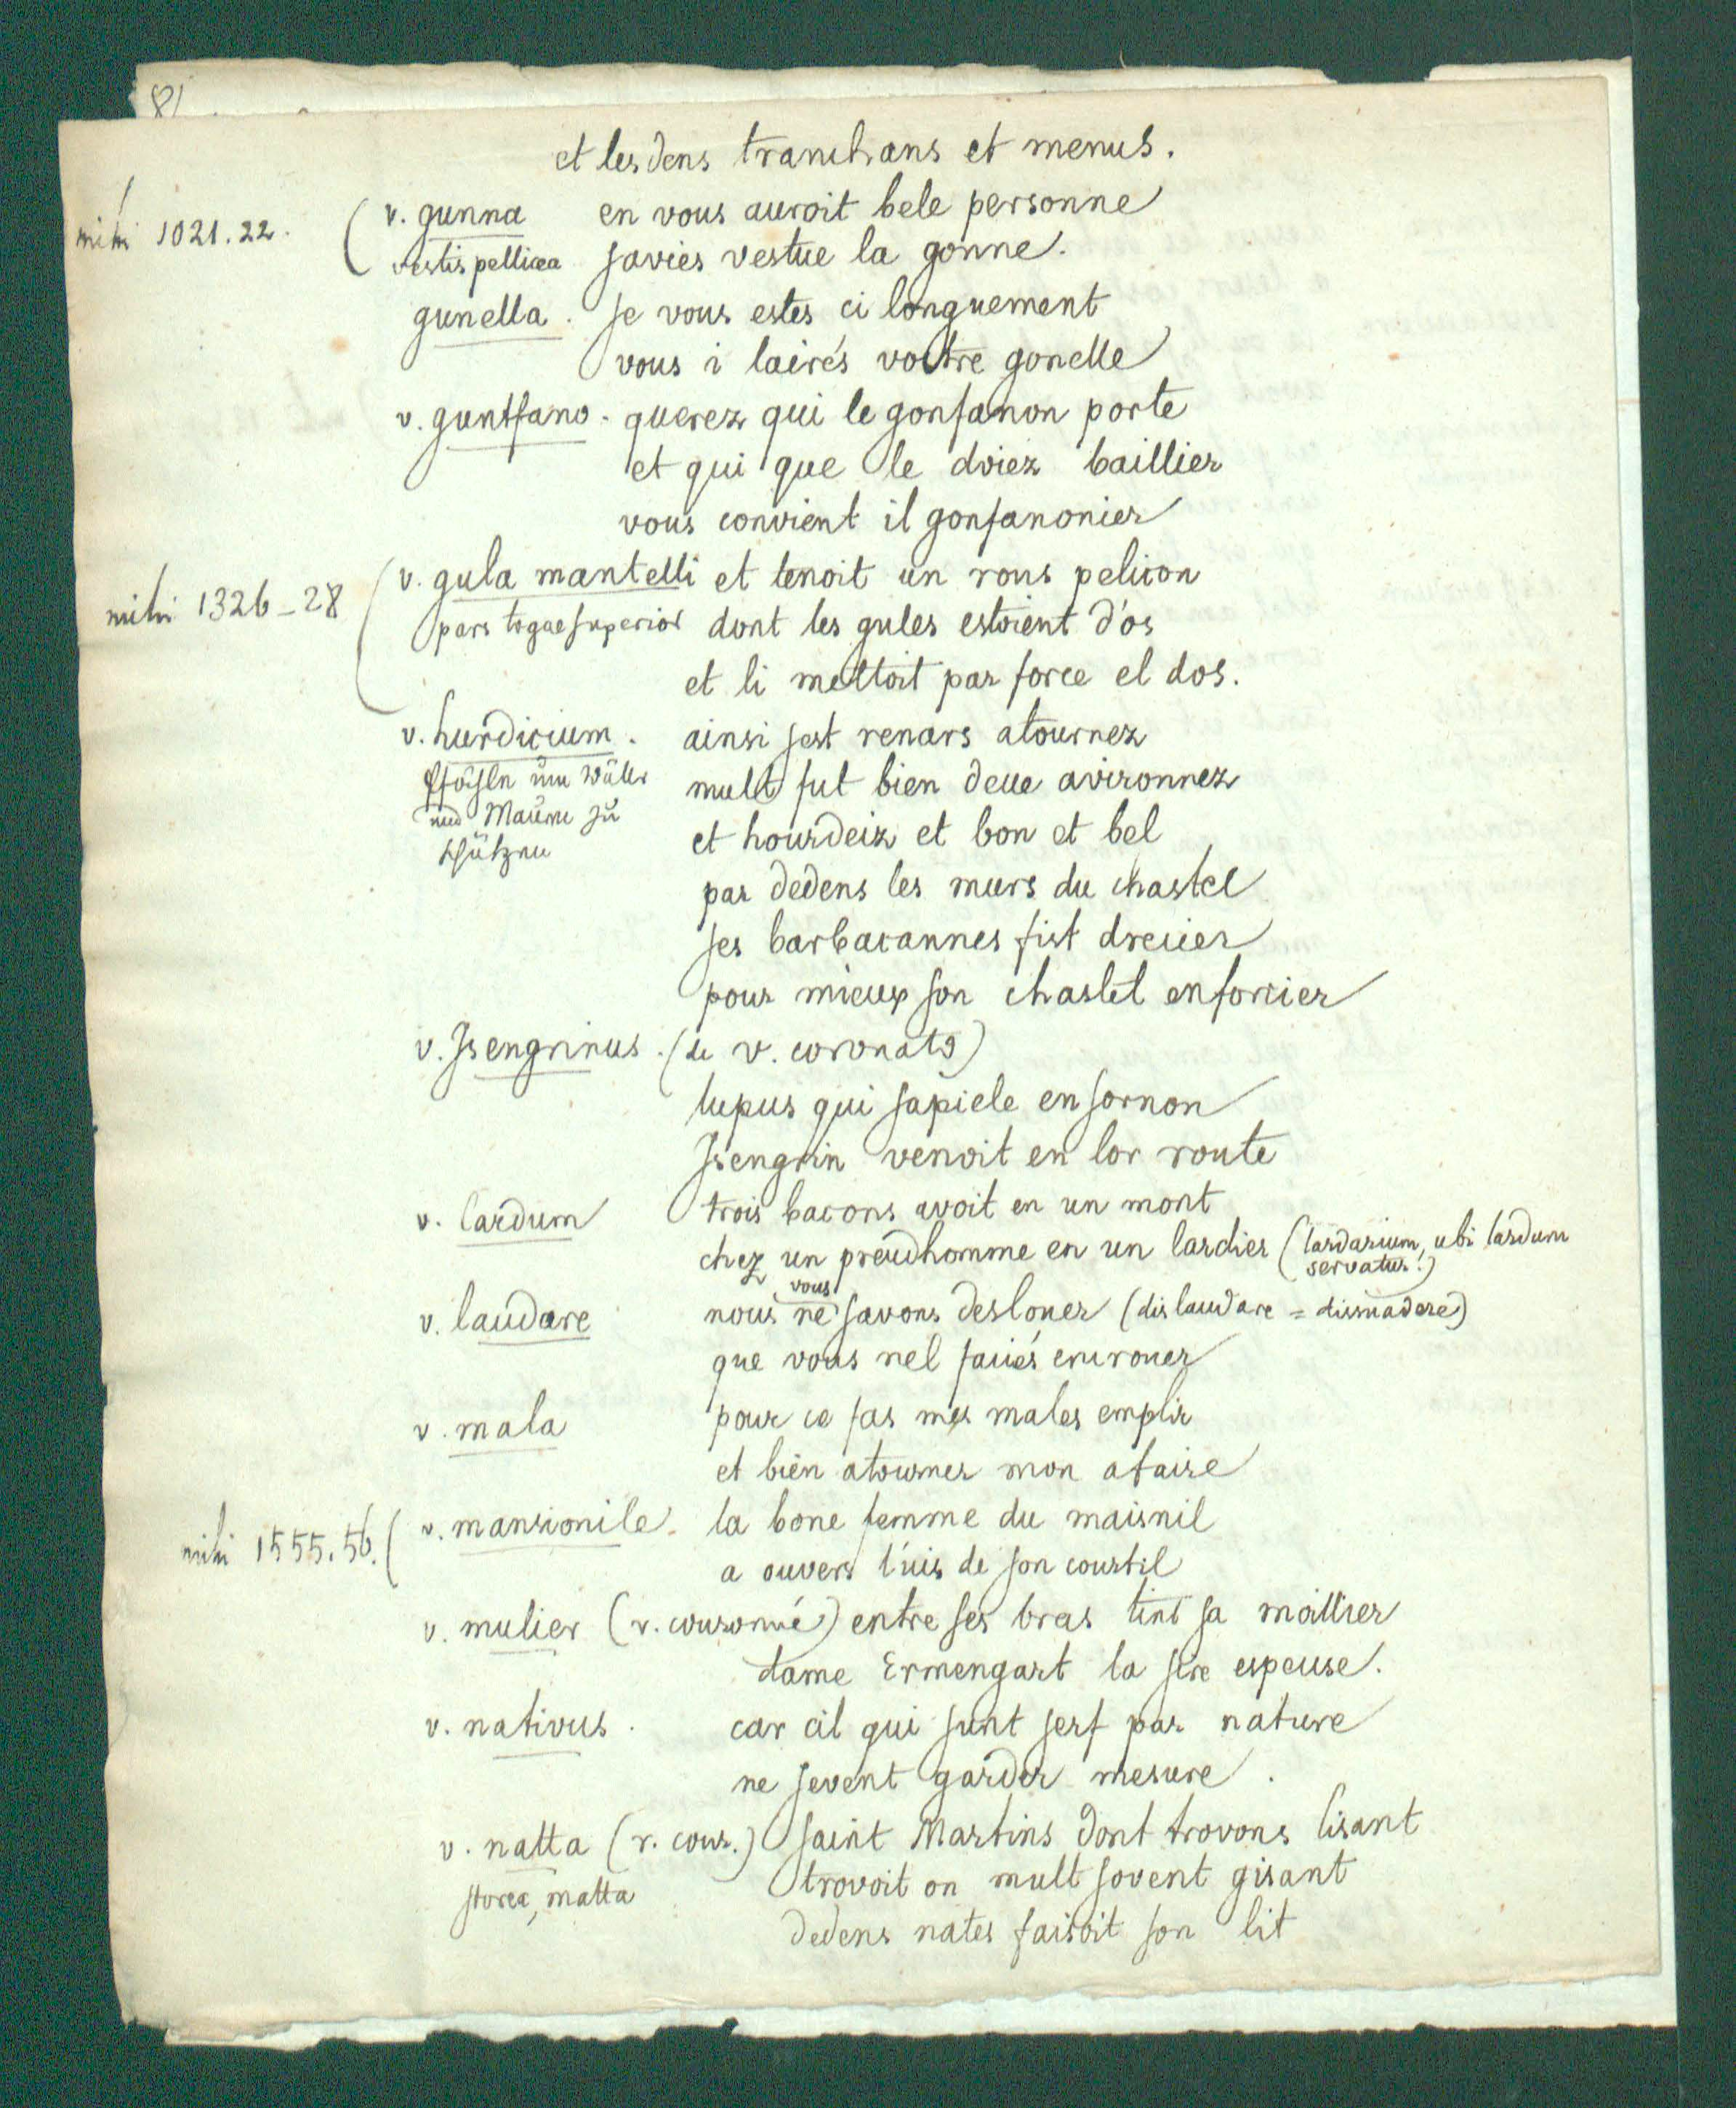 et les dens tranchans et menus.
mihi 1021.22. ( v. gunna en vous auroit bele personne
vestis pellicea savies vestue la gonne.
gunella. se vous estes ci longuement
vous i lairés vostre gonelle
v. guntfano. querez qui le gonfanon porte
et qui que le doiez baillier
vous convient il gonfanonier
mihi 1326-28 ( v. gula mantelli et tenoit un rous pelicon
pars togae superior dont les gules estoient d'os
et li mettoit par force el dos.
v. hurdicium. ainsi sest renars atournez
mult fut bien deue avironnez
und Mauern zu
schützen
et hourdeiz et bon et bel
par dedens les murs du chastel
ses barbacannes fist drecier
pour mieux son chastel enforcier
v. Isengrinus. (de v. coronato)
lupus qui sapiele en sornon
Isengrin venoit en lor route
v. lardum trois bacons avoit en un mont
chez un preudhomme en un lardier (lardarium, ubi lardum
servatur.)
vous
v. laudare nous ne savons deslouer (dislaudare = dissuadere)
que vous nel faciés encrouer
v. mala pour ce fas mes males emplir
et bien atourner mon afaire
mihi 1555.56. ( v. mansionile. la bone femme du maisnil
a ouvert l'uis de son courtil
v. mulier (r. couronné) entre ses bras tint sa moillier
dame Ermengart la sere espeuse.
v. nativus. car cil qui sunt serf par nature
ne sevent garder mesure.
v. natta (r. cour.) saint Martins dont trovons lisant
storea, matta trovoit on mult sovent gisant
dedens nates faisoit son lit